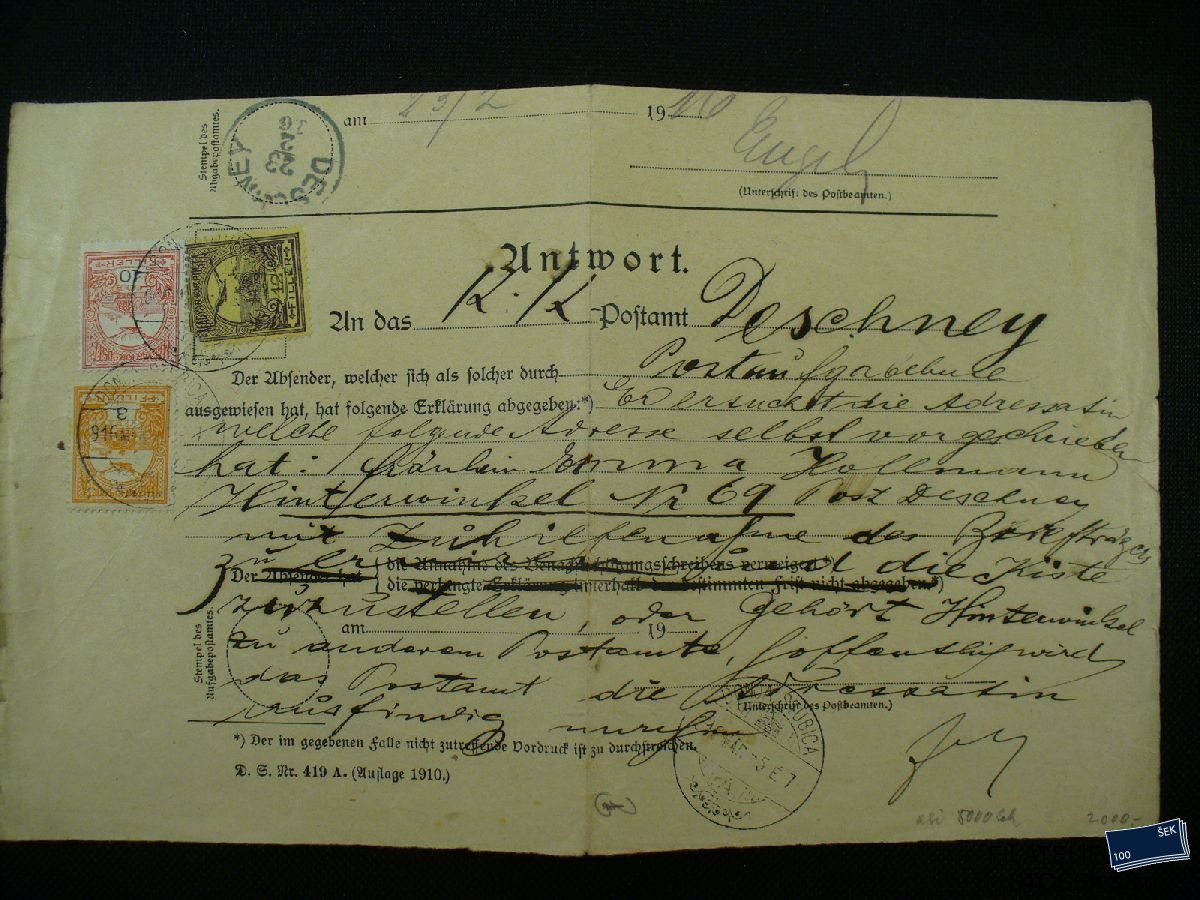 Stempel des
Abgabepostamtes.
DESCHNEY
23
16
am 23/2 19
Engel
(Unterschrift des Postbeamten.)
Antwort.
FILLER 10
12 FILLER
FILLER 3
An das K. K. Postamt Deschney
Der Absender, welcher sich als solcher durch- Postaufgabebule
ausgewiesen hat, hat folgende Erklärung abgegeben:*) Er ersucht die Adressatin
welche folgende Adresse selbst vorgeschrieben
hat: Fräulein Emma Hollmann
Hinterwinkel Nr 69 Post Deschney
mit Zuhilfenahme des Briefträgers
zu
die Annahme des Benachrichtigungsschreibens verweigert*) die Kiste
Der Absender hat
die verlangte Erklärung innerhalb der bestimmten Frist nicht abgegeben.*)
zuzustellen, oder gehört Hinterwinkel
Stempel des
Aufgabepostamtes.
am 19
zu anderem Postamte, hoffentlich wird
das Postamt die Adressatin
(Unterschrift des Postbeamten.)
ausfindig
*) Der im gegebenen Falle nicht zutreffende Vordruck ist zu durchstreichen.
D. S. Nr. 419 A. (Auflage 1910.)
2000.-
100 ŠEK
FILATELIE